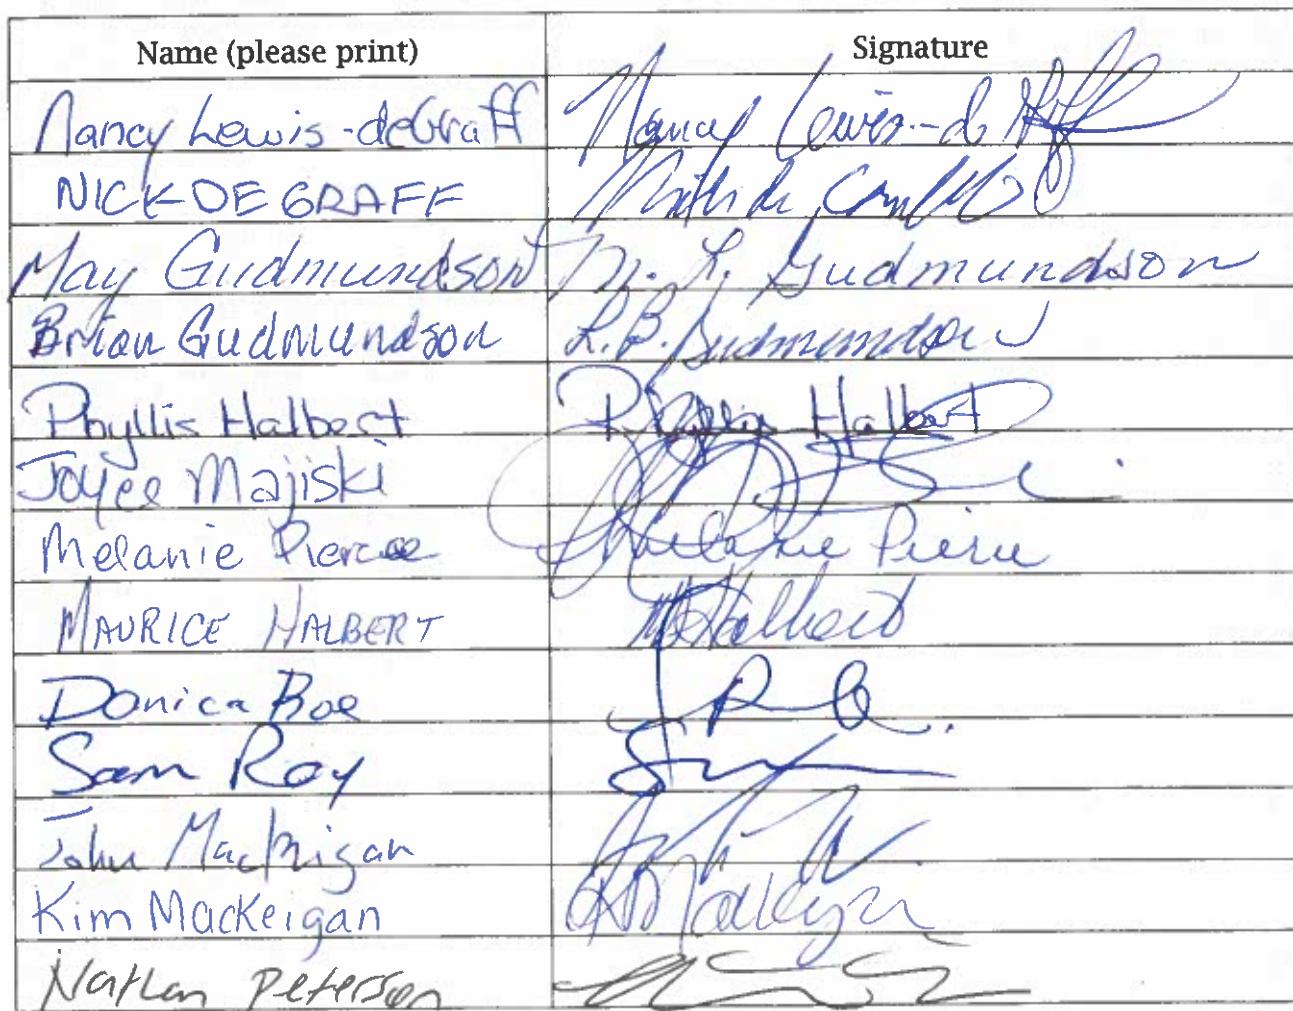 Name (please print) Signature
Nancy Lewis-deGraff Nancy Lewis-de
NICK DE GRAFF
May Gudmundson M. L. Gudmundson
Brian Gudmundson R.B. Gudmundson
Phyllis Halbert Phyllis Halbert
Joyce Majiski
Melanie Pierce Melanie Pierce
MAURICE HALBERT M Halbert
Donica Boe
Sam Roy
John MacKeigan
Kim MacKeigan K MacKeigan
Nathan Peterson